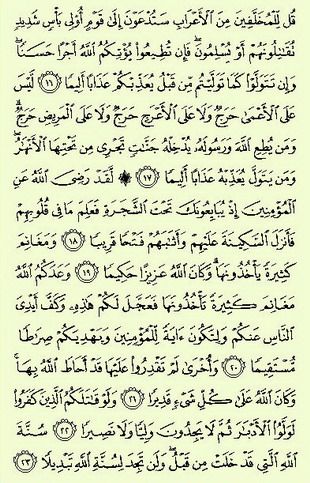 قُل لِّلْمُخَلَّفِينَ مِنَ ٱلْأَعْرَابِ سَتُدْعَوْنَ إِلَىٰ قَوْمٍ أُو۟لِى بَأْسٍ شَدِيدٍ
تُقَٰتِلُونَهُمْ أَوْ يُسْلِمُونَ ۖ فَإِن تُطِيعُوا۟ يُؤْتِكُمُ ٱللَّهُ أَجْرًا حَسَنًا ۖ
وَإِن تَتَوَلَّوْا۟ كَمَا تَوَلَّيْتُم مِّن قَبْلُ يُعَذِّبْكُمْ عَذَابًا أَلِيمًا ١٦ لَّيْسَ
عَلَى ٱلْأَعْمَىٰ حَرَجٌ وَلَا عَلَى ٱلْأَعْرَجِ حَرَجٌ وَلَا عَلَى ٱلْمَرِيضِ حَرَجٌ ۗ
وَمَن يُطِعِ ٱللَّهَ وَرَسُولَهُۥ يُدْخِلْهُ جَنَّٰتٍ تَجْرِى مِن تَحْتِهَا ٱلْأَنْهَٰرُ ۖ
وَمَن يَتَوَلَّ يُعَذِّبْهُ عَذَابًا أَلِيمًا ١٧ ۞ لَّقَدْ رَضِىَ ٱللَّهُ عَنِ
ٱلْمُؤْمِنِينَ إِذْ يُبَايِعُونَكَ تَحْتَ ٱلشَّجَرَةِ فَعَلِمَ مَا فِى قُلُوبِهِمْ
فَأَنزَلَ ٱلسَّكِينَةَ عَلَيْهِمْ وَأَثَٰبَهُمْ فَتْحًا قَرِيبًا ١٨ وَمَغَانِمَ
كَثِيرَةً يَأْخُذُونَهَا ۗ وَكَانَ ٱللَّهُ عَزِيزًا حَكِيمًا ١٩ وَعَدَكُمُ ٱللَّهُ
مَغَانِمَ كَثِيرَةً تَأْخُذُونَهَا فَعَجَّلَ لَكُمْ هَٰذِهِۦ وَكَفَّ أَيْدِىَ
ٱلنَّاسِ عَنكُمْ وَلِتَكُونَ ءَايَةً لِّلْمُؤْمِنِينَ وَيَهْدِيَكُمْ صِرَٰطًا
مُّسْتَقِيمًا ٢٠ وَأُخْرَىٰ لَمْ تَقْدِرُوا۟ عَلَيْهَا قَدْ أَحَاطَ ٱللَّهُ بِهَا ۚ
وَكَانَ ٱللَّهُ عَلَىٰ كُلِّ شَىْءٍ قَدِيرًا ٢١ وَلَوْ قَٰتَلَكُمُ ٱلَّذِينَ كَفَرُوا۟
لَوَلَّوُا۟ ٱلْأَدْبَٰرَ ثُمَّ لَا يَجِدُونَ وَلِيًّا وَلَا نَصِيرًا ٢٢ سُنَّةَ
ٱللَّهِ ٱلَّتِى قَدْ خَلَتْ مِن قَبْلُ ۖ وَلَن تَجِدَ لِسُنَّةِ ٱللَّهِ تَبْدِيلًا ٢٣